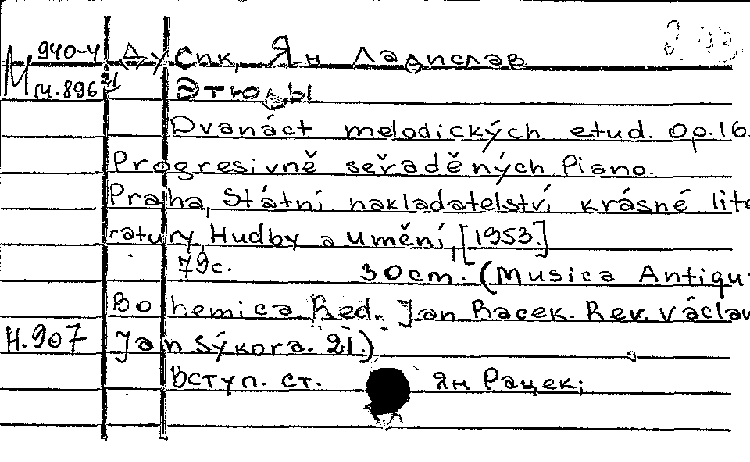 940-4 Дусик, Ян Ладислав
М 14.896 Этюды
Dvanáct melodických etud. Op.16.
Progresivně seřaděných Piano.
Praha, Státní nakladatelství krásné lite
ratury, Hudby a umění, [1953.]
79c. 30cm. (Musica Antiqu
Bohemica Red. Jan Racek. Rev. Václav
H.907 Jan Sýkora. 21.)
Вступ. ст. Ян Рацек;